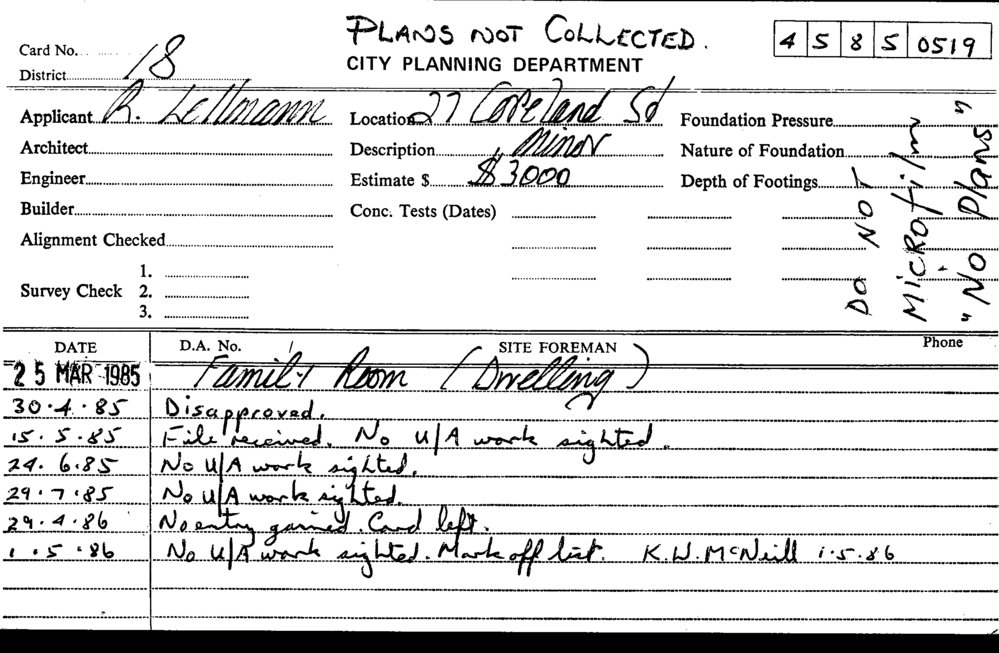 PLANS NOT COLLECTED.
4 5 8 5 0519
Card No.
District 18
CITY PLANNING DEPARTMENT
Applicant R. Lellmann
Architect
Engineer
Builder
Alignment Checked
Survey Check 1.
2.
3.
Location 27 Copeland Sd
Description Minor
Estimate $ $3000
Conc. Tests (Dates)
Foundation Pressure
Nature of Foundation
Depth of Footings
DO NOT
MICROfilm
"No Plans"
DATE D.A. No. SITE FOREMAN Phone
25 MAR 1985 Family Room (Dwelling)
30.4.85 Disapproved.
15.5.85 File received. No U/A work sighted.
24.6.85 No U/A work sighted.
29.7.85 No U/A work sighted.
29.4.86 No entry gained. Card left.
1.5.86 No U/A work sighted. Mark off list. K.W. McNeill 1.5.86